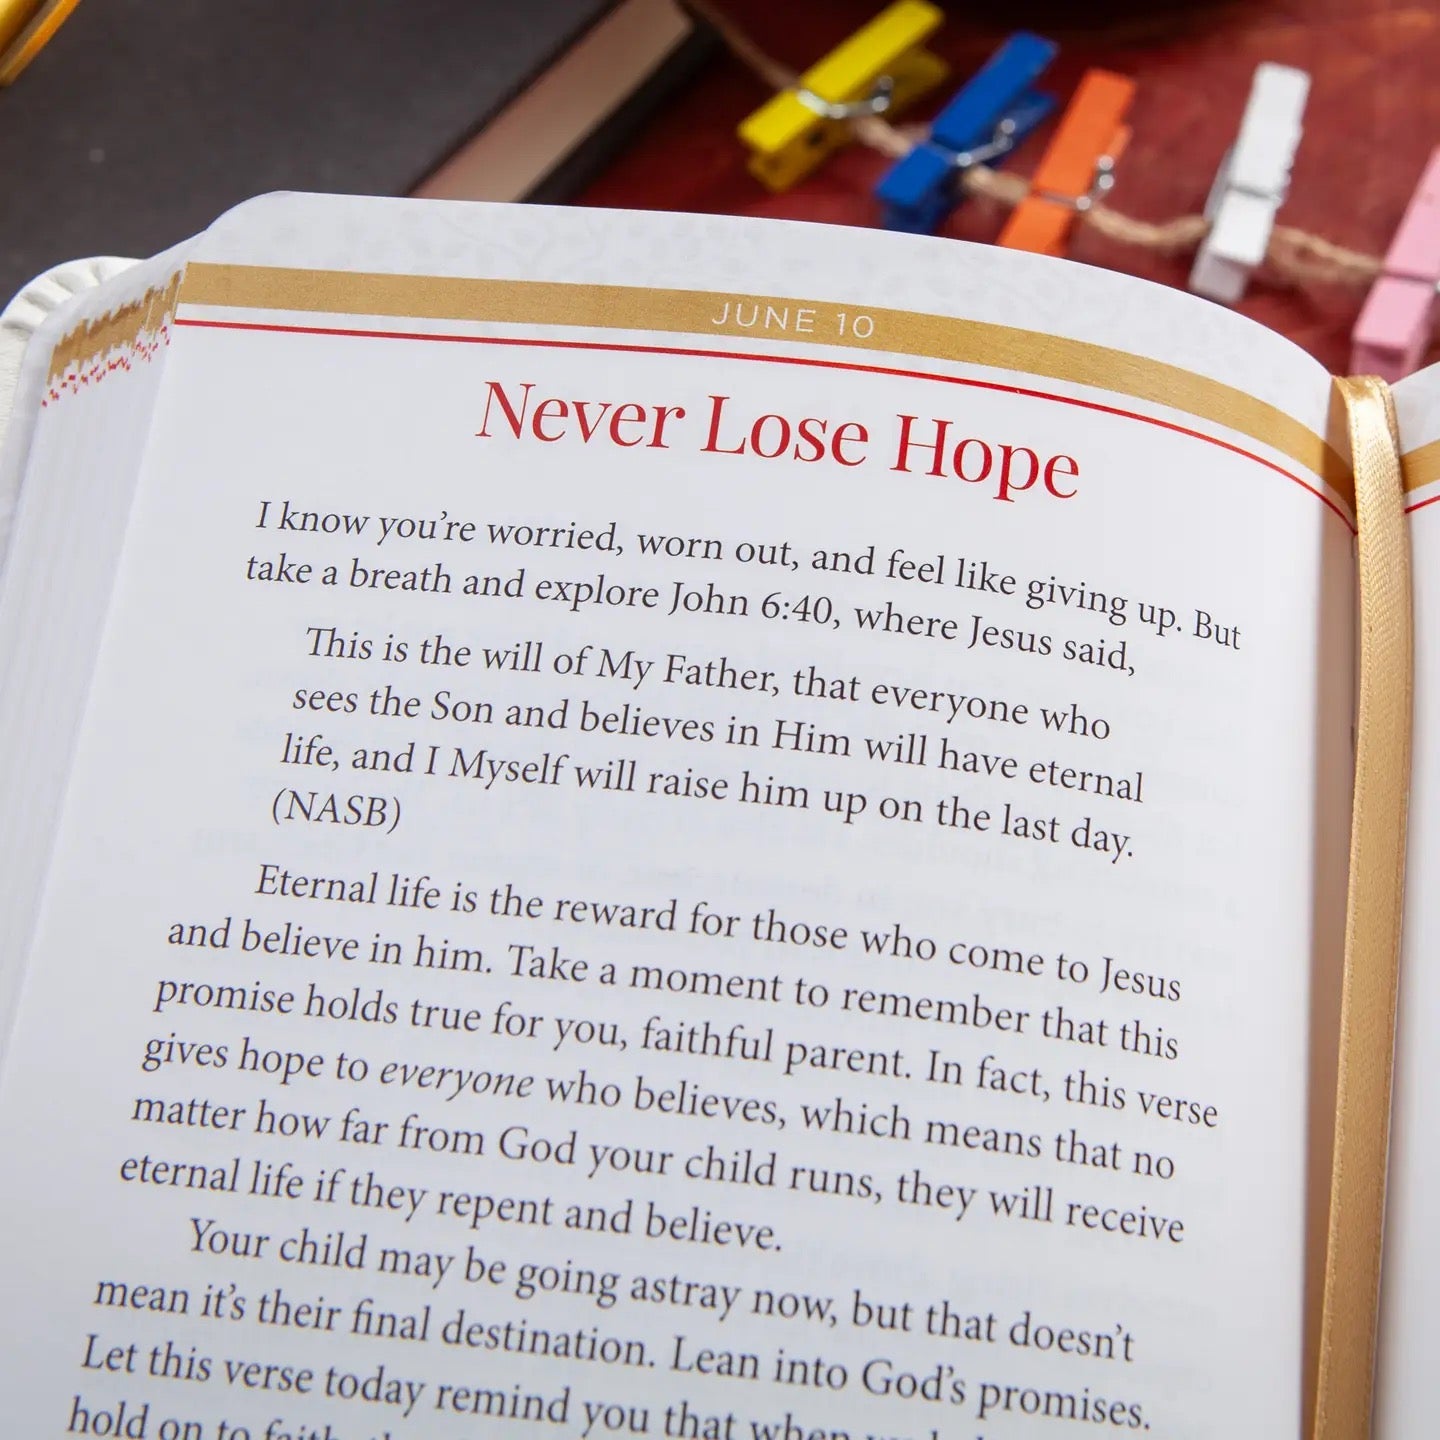 JUNE 10
Never Lose Hope
I know you’re worried, worn out, and feel like giving up. But
take a breath and explore John 6:40, where Jesus said,
This is the will of My Father, that everyone who
sees the Son and believes in Him will have eternal
life, and I Myself will raise him up on the last day.
(NASB)
Eternal life is the reward for those who come to Jesus
and believe in him. Take a moment to remember that this
promise holds true for you, faithful parent. In fact, this verse
gives hope to everyone who believes, which means that no
matter how far from God your child runs, they will receive
eternal life if they repent and believe.
Your child may be going astray now, but that doesn’t
mean it’s their final destination. Lean into God’s promises.
Let this verse today remind you that when
hold on to faith,